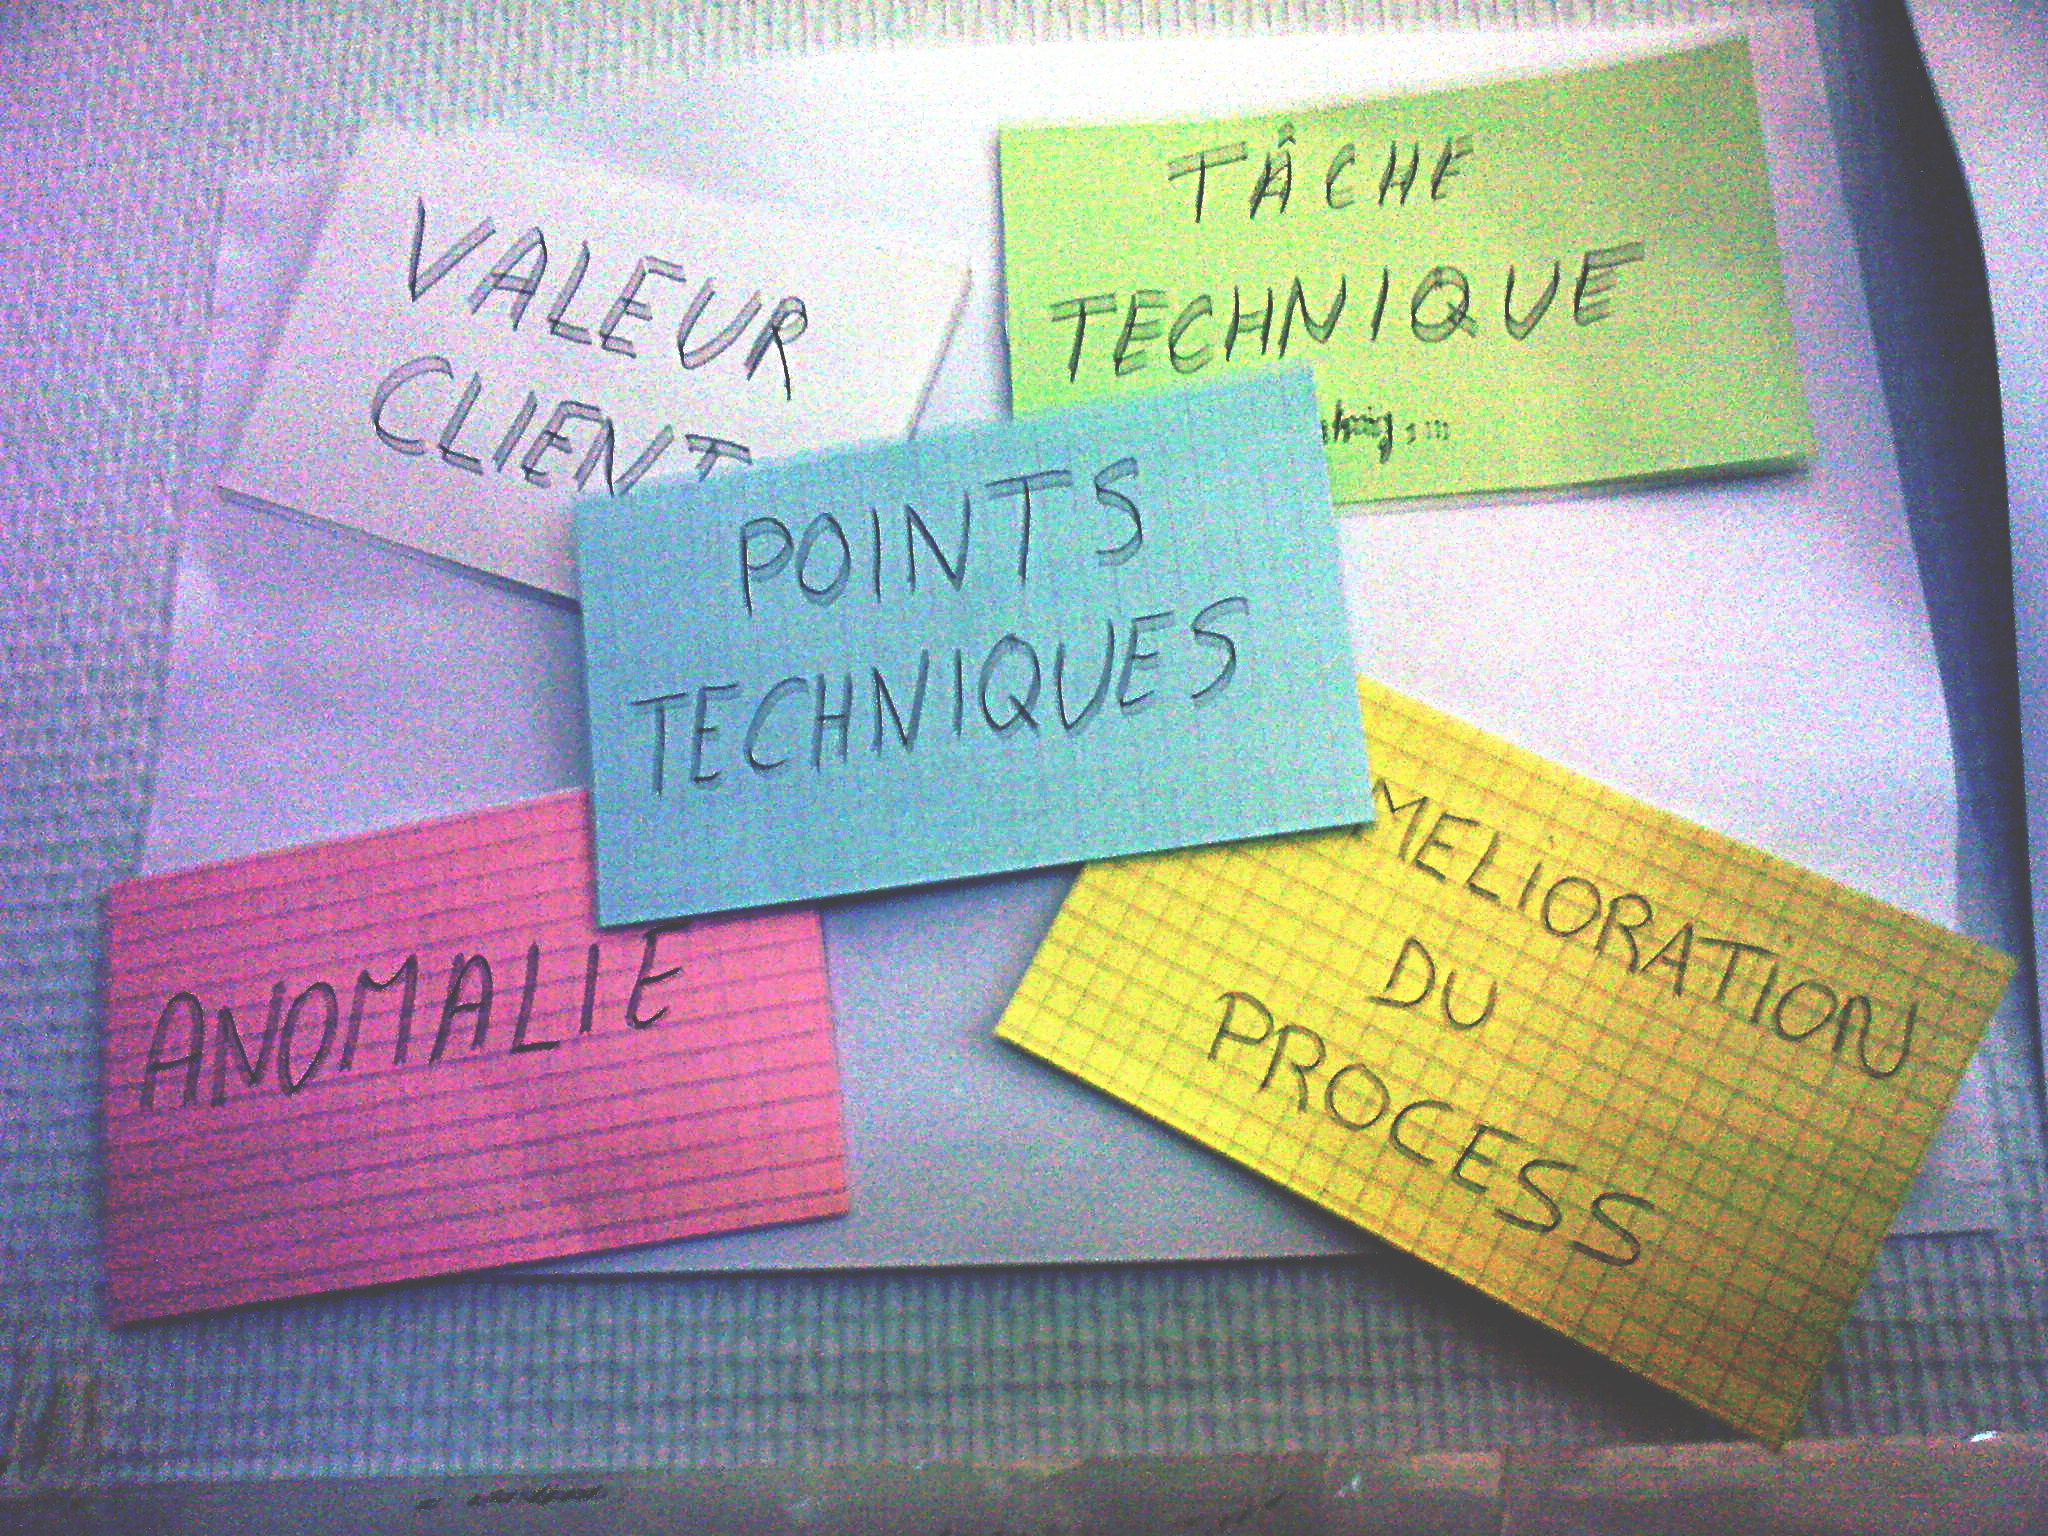 VALEUR
CLIENT
TÂCHE
TECHNIQUE
POINTS
TECHNIQUES
ANOMALIE
MELIORATION
DU
PROCESS